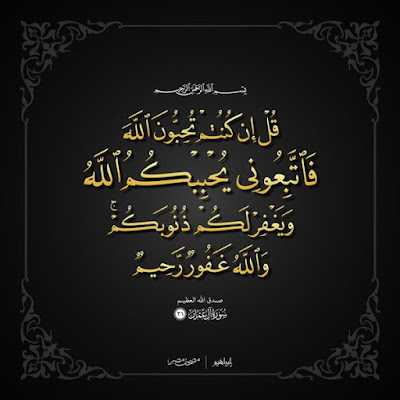 بِسْمِ اللَّهِ الرَّحْمَٰنِ الرَّحِيمِ
قُلْ إِن كُنتُمْ تُحِبُّونَ ٱللَّهَ
فَٱتَّبِعُونِى يُحْبِبْكُمُ ٱللَّهُ
وَيَغْفِرْ لَكُمْ ذُنُوبَكُمْ ۗ
وَٱللَّهُ غَفُورٌ رَّحِيمٌ
صدق الله العظيم
سُورَةُ آلِ عِمْرَان ٣١
إبراهيم | مصحف مصر